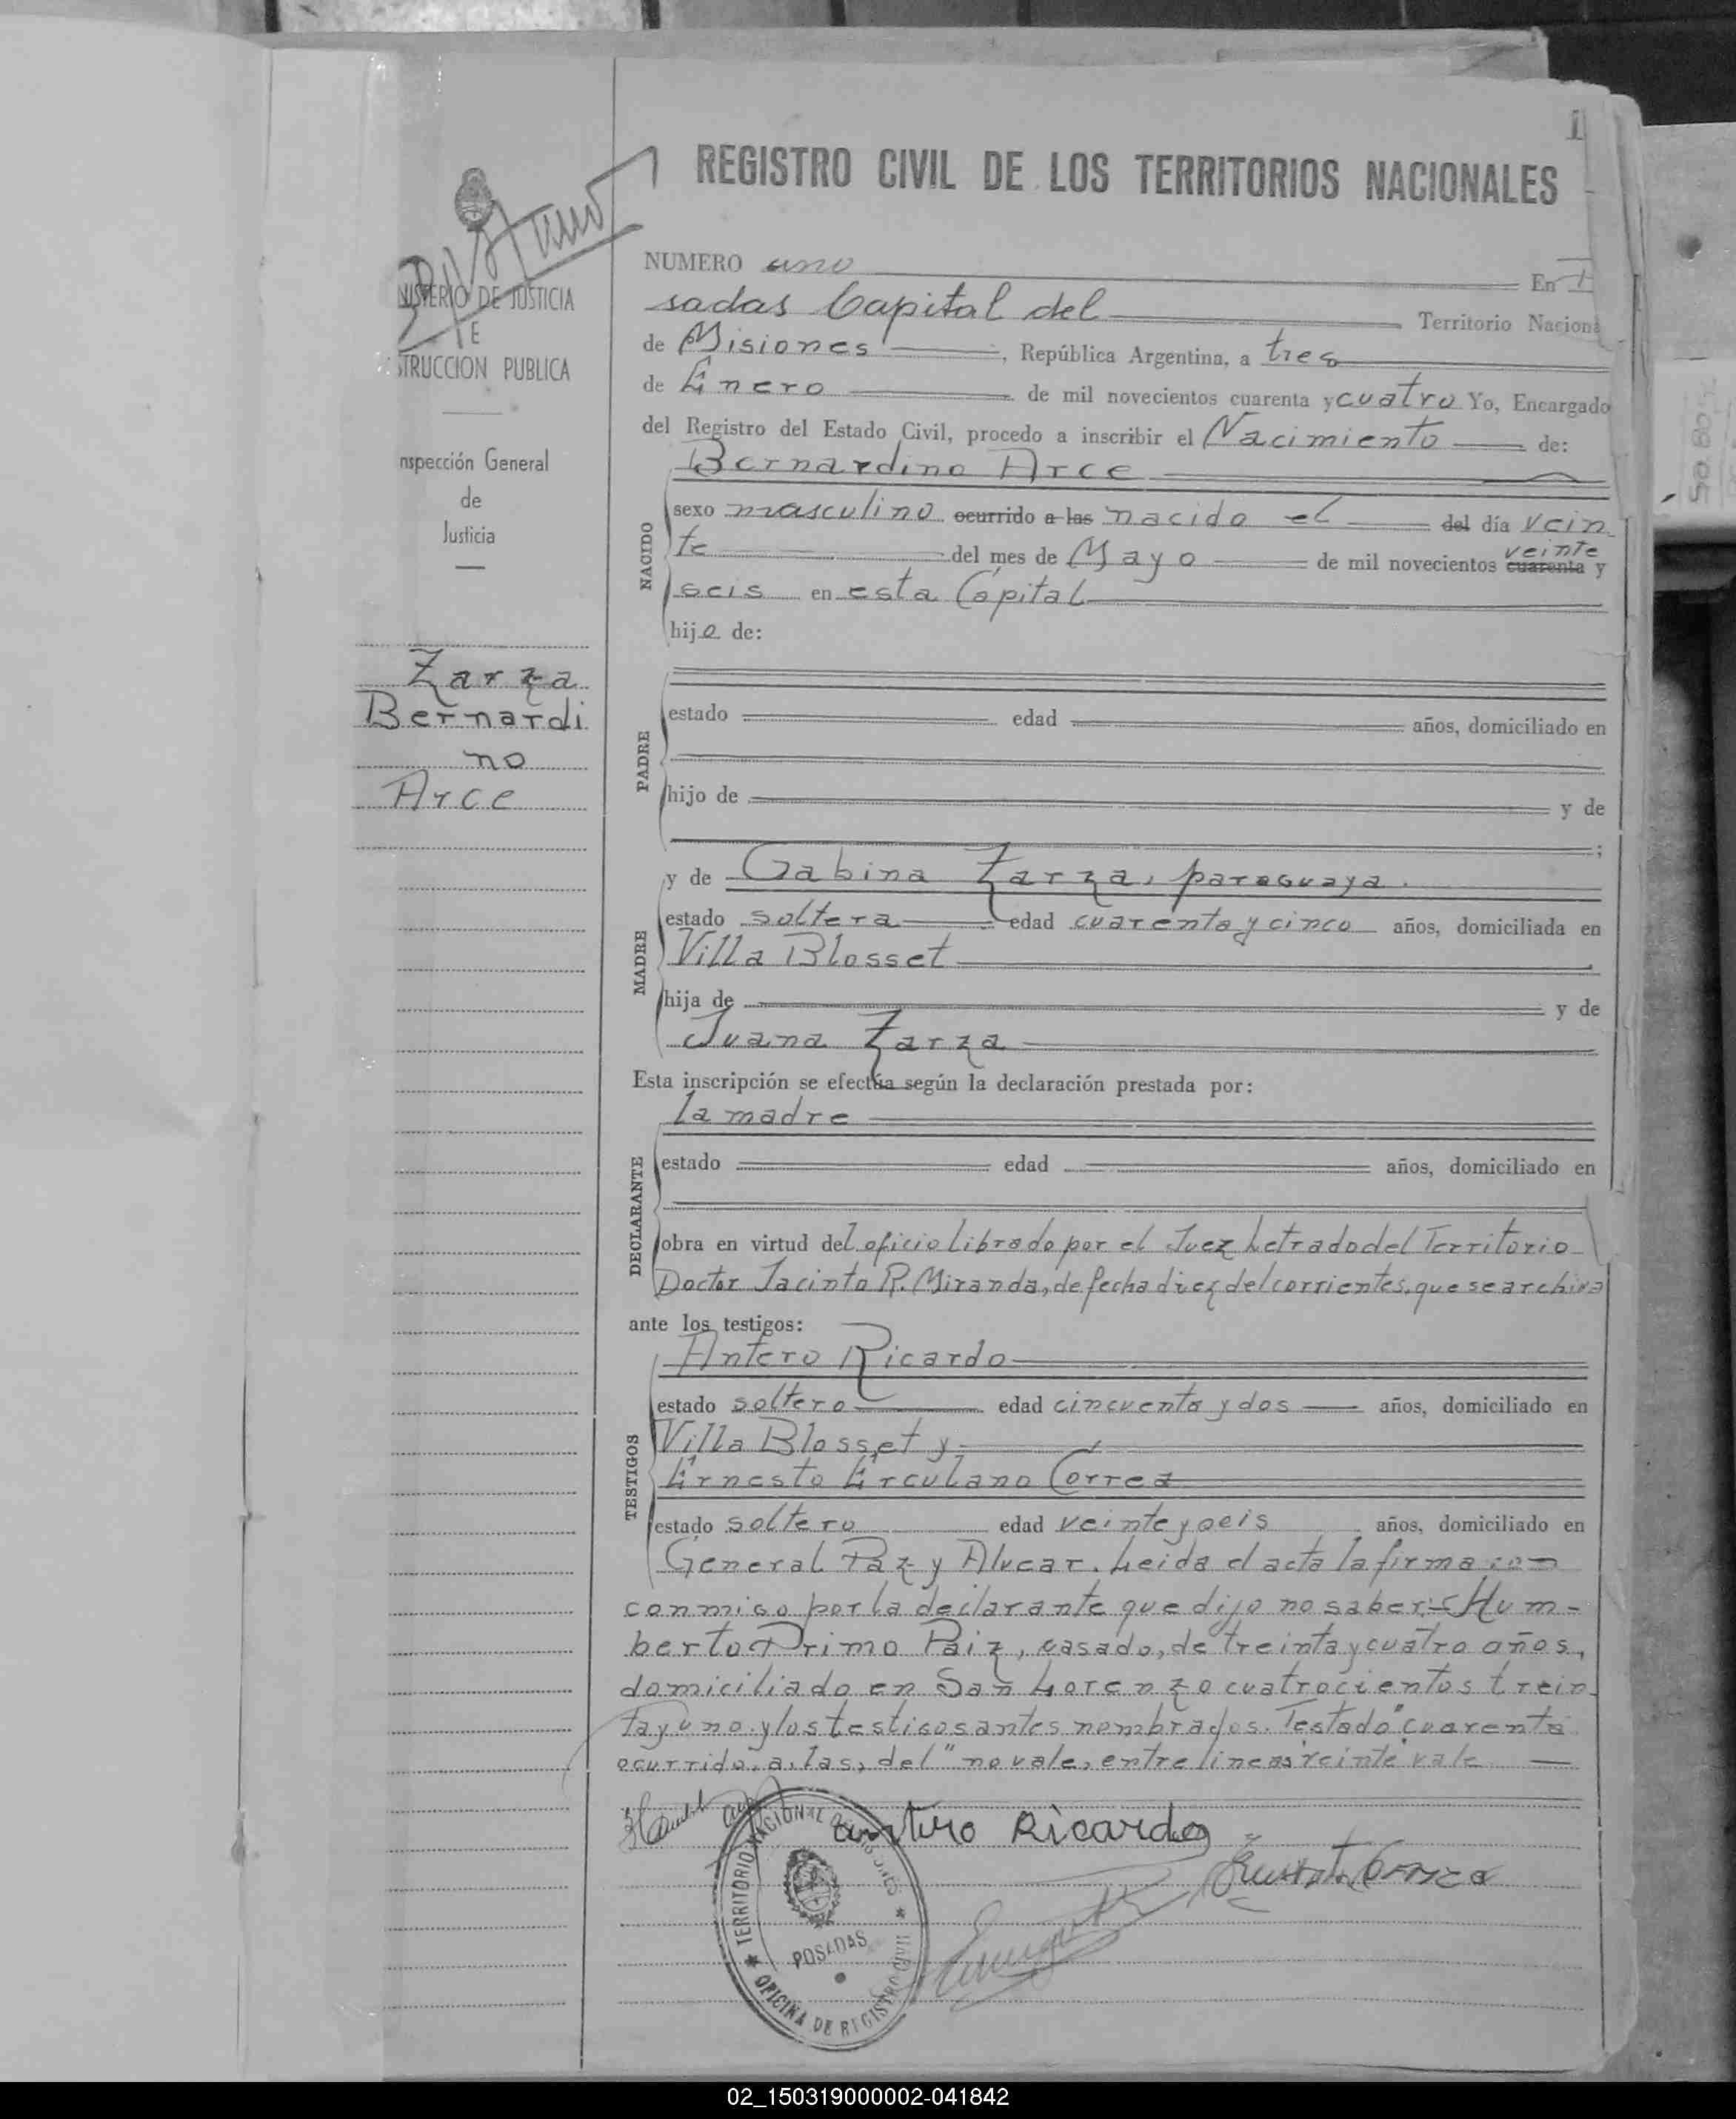 1
REGISTRO CIVIL DE LOS TERRITORIOS NACIONALES
NISTERIO DE JUSTICIA
E
STRUCCION PUBLICA
nspección General
de
Justicia
Zarza
Bernardi
no
Arce
NUMERO uno En P
sadas Capital del Territorio Naciona
de Misiones, República Argentina, a tres
de Enero de mil novecientos cuarenta y cuatro Yo, Encargado
del Registro del Estado Civil, procedo a inscribir el Nacimiento de:
Bernardino Arce
NACIDO
sexo masculino ocurrido a las nacido el del día vein
te del mes de Mayo de mil novecientos cuarenta veinte y
seis en esta Capital
hijo de:
PADRE
estado edad años, domiciliado en
hijo de y de
;
MADRE
y de Gabina Zarza, paraguaya.
estado soltera edad cuarenta y cinco años, domiciliada en
Villa Blosset
hija de y de
Juana Zarza
Esta inscripción se efectúa según la declaración prestada por:
la madre
DECLARANTE
estado edad años, domiciliado en
obra en virtud del oficio librado por el Juez Letrado del Territorio
Doctor Jacinto R. Miranda, de fecha diez del corrientes, que se archiva
ante los testigos:
TESTIGOS
Antero Ricardo
estado soltero edad cincuenta y dos años, domiciliado en
Villa Blosset y
Ernesto Erculano Correa
estado soltero edad veinte y seis años, domiciliado en
General Paz y Alvear. Leida el acta la firma con
conmigo por la declarante que dijo no saber:- Hum-
berto Primo Paiz, casado, de treinta y cuatro años,
domiciliado en San Lorenzo cuatrocientos trein
ta y uno y los testigos antes nombrados. Testado "cuarenta
ocurrido, a, las, del" no vale, entre lineas "veinte" vale
Antero Ricardo
Ernesto Correa
TERRITORIO NACIONAL DE MISIONES
POSADAS
OFICINA DE REGISTRO CIVIL
50.80
02_150319000002-041842